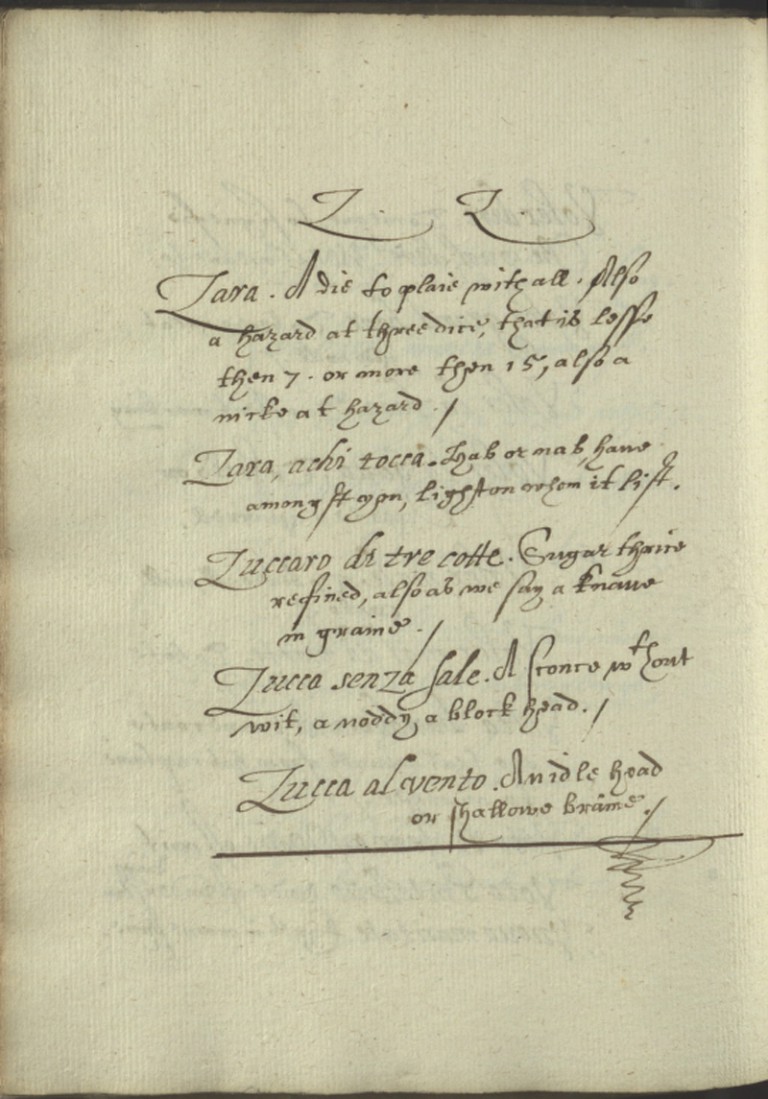 Z Z
Zara. A die to plaie withall. Also
a hazard at three dice, that is lesse
then 7. or more then 15, also a
nicke at hazard. /
Zara, achi tocca. Hab or nab, have
amongst yon, light on whom it list.
Zuccaro di tre cotte. Sugar thrice
refined, also as we say a knaue
in graine. /
Zucca senza sale. A sconce wthout
wit, a noddy, a block head. /
Zucca al vento. An idle head
or shallowe braine. /